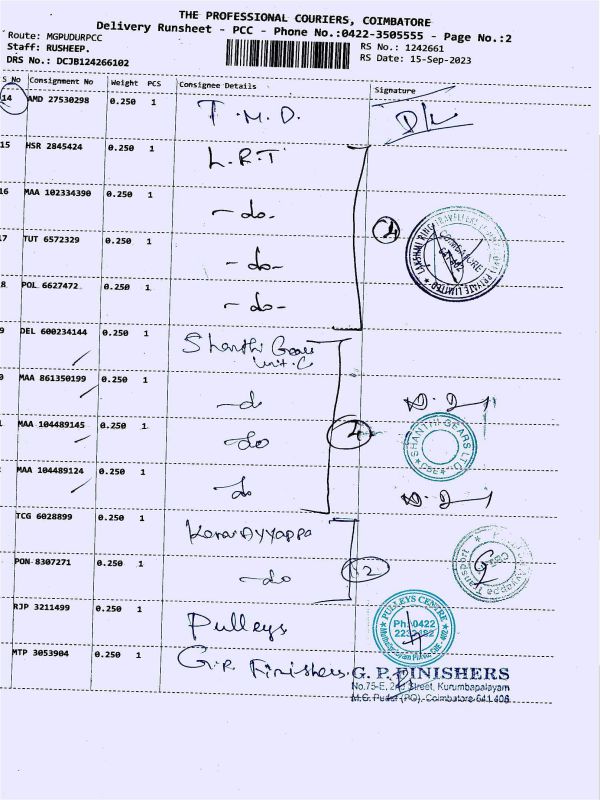 THE PROFESSIONAL COURIERS, COIMBATORE
Delivery Runsheet - PCC - Phone No.:0422-3505555 - Page No.:2
Route: MGPUDURPCC
Staff: RUSHEEP.
DRS No.: DCJB124266102
RS No.: 1242661
RS Date: 15-Sep-2023
S No Consignment No Weight PCS Consignee Details Signature
14 AMD 27530298 0.250 1 T.M.D.
15 HSR 2845424 0.250 1 L.R.T
16 MAA 102334390 0.250 1 -do-
17 TUT 6572329 0.250 1 -do-
8 POL 6627472 0.250 1 -do-
4
COIMBATORE
PRIVATE LIMITED
9 DEL 600234144 0.250 1 Shanthi Gears
unit.C
MAA 861350199 0.250 1 -d
MAA 104489145 0.250 1 do
4
SHANTHI GEARS LTD
MAA 104489124 0.250 1 do
TCG 6028899 0.250 1
PON 8307271 0.250 1 -do
2
RJP 3211499 0.250 1 Pulleys
PULLEYS CENTRE
Ph: 0422
MTP 3053904 0.250 1 G.P. Finishers.
G. P. FINISHERS
No.75-E, 2nd Street, Kurumbapalayam
M.G. Pudur (PO), Coimbatore 641 406